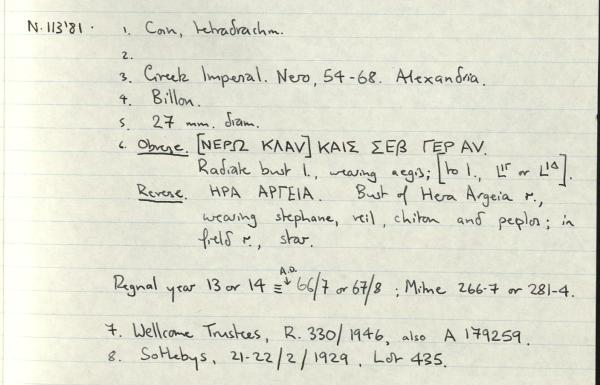 N.113'81. 1. Coin, tetradrachm.
2.
3. Greek Imperial. Nero, 54-68. Alexandria.
4. Billon.
5. 27 mm. diam.
6. Obverse. [ΝΕΡΩ ΚΛΑV] ΚΑΙΣ ΣΕΒ ΓΕΡ ΑV.
Radiate bust l., wearing aegis; [to l., LΙΓ or LΙΔ].
Reverse. ΗΡΑ ΑΡΓΕΙΑ. Bust of Hera Argeia r.,
wearing stephane, veil, chiton and peplos; in
field r., star.
Regnal year 13 or 14 ≡ A.D. 66/7 or 67/8; Milne 266-7 or 281-4.
7. Wellcome Trustees, R.330/1946, also A 179259.
8. Sothebys, 21-22/2/1929, Lot 435.